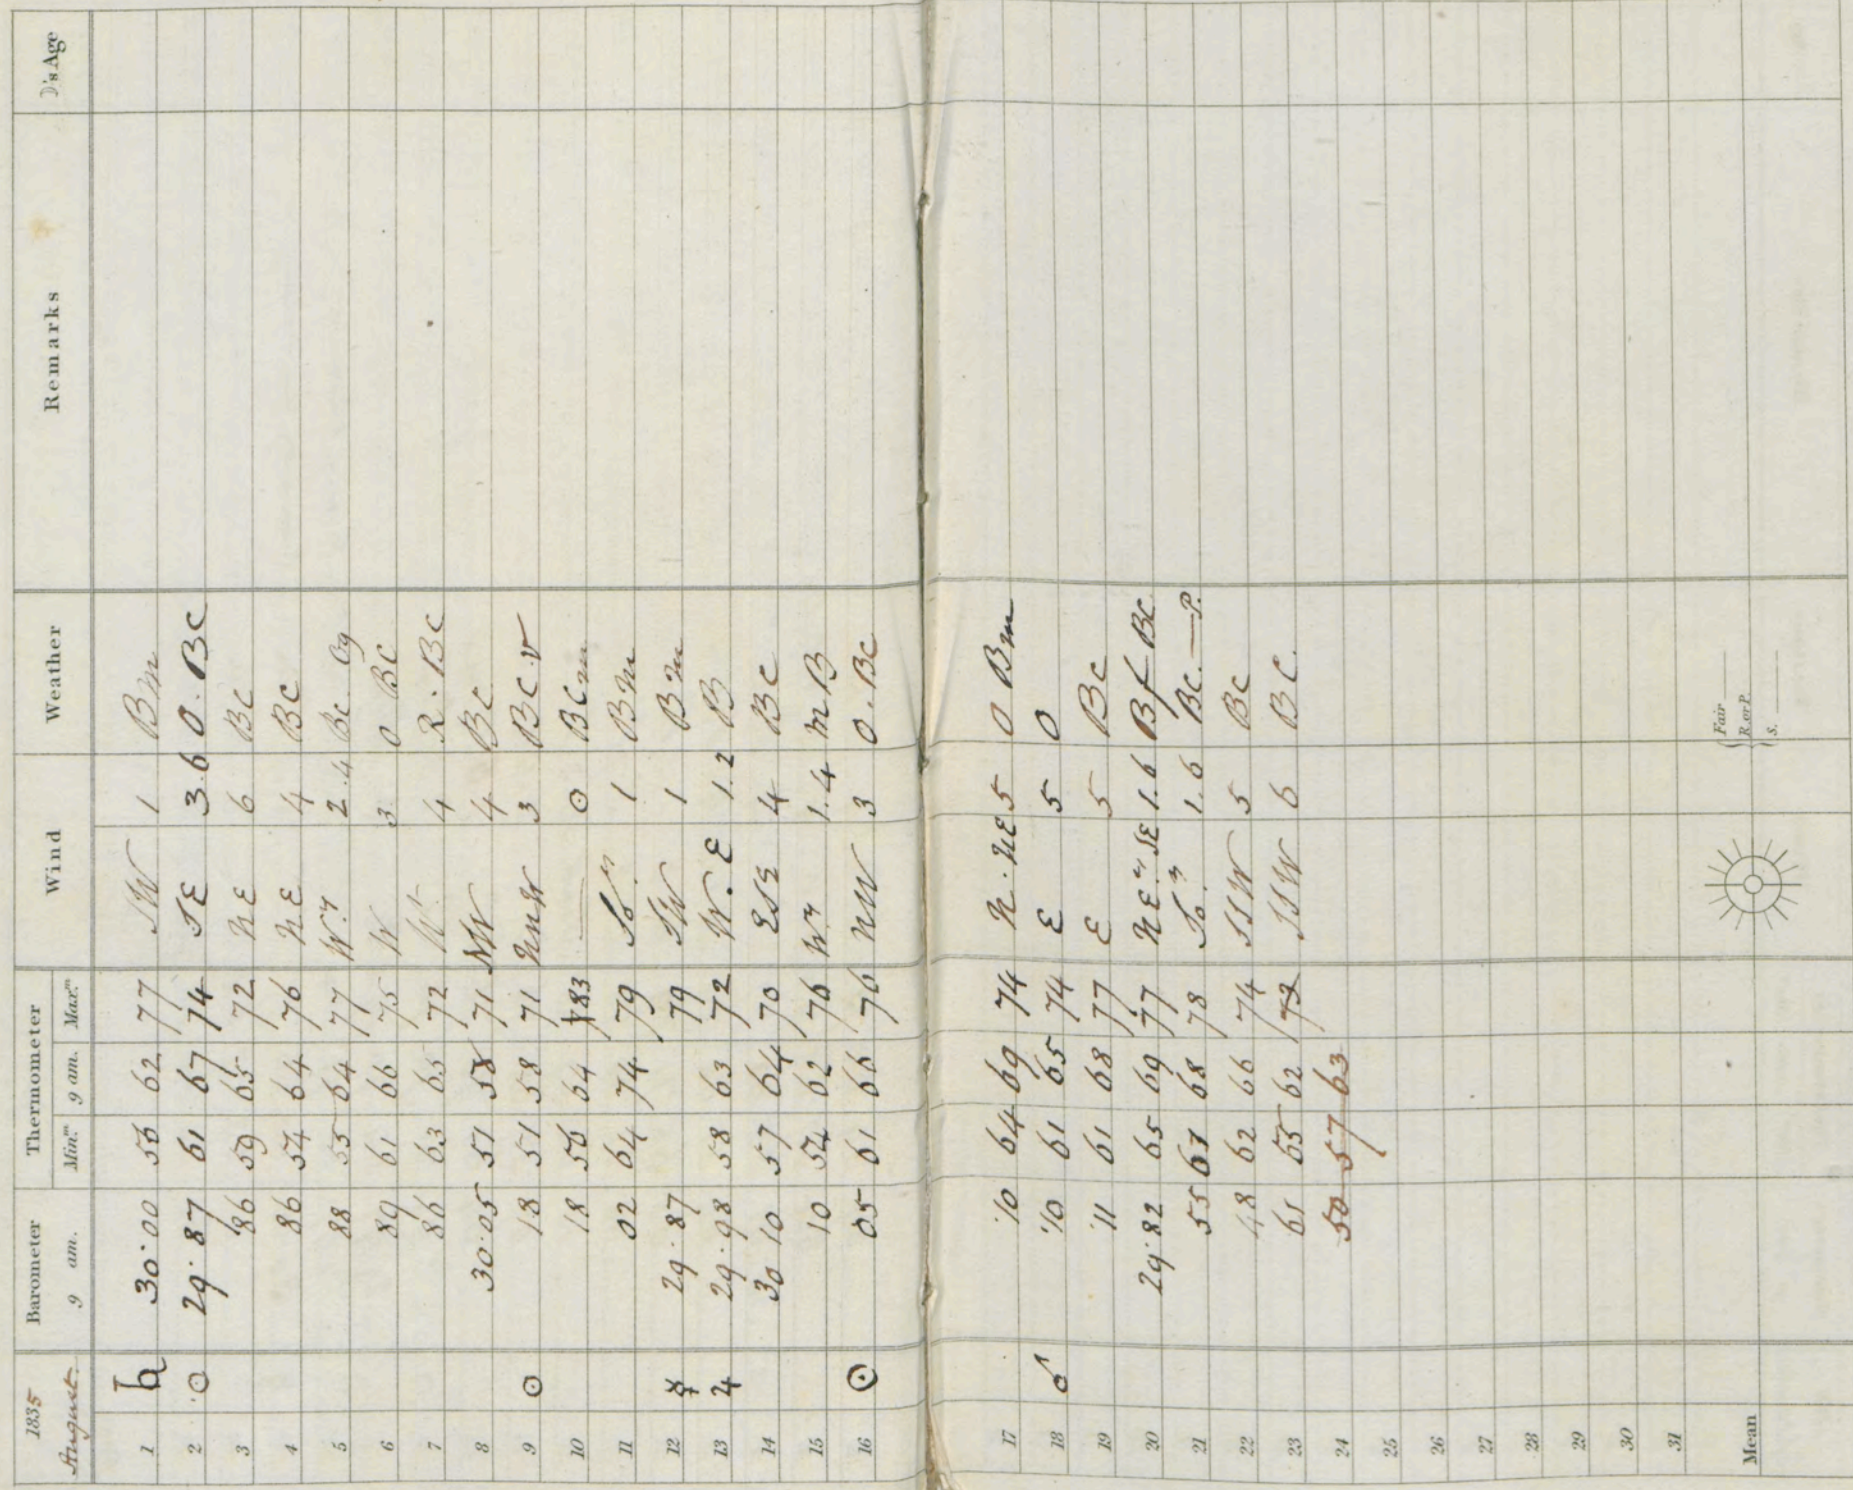 1835 August Barometer 9 am. Thermometer Min.m 9 am. Max.m Wind Weather Remarks ☽'s Age
1 ♄ 30.00 53 62 77 SW 1 Bm
2 ☉ 29.87 61 67 74 SE 3.6 O. BC
3 86 59 65 72 NE 6 BC
4 86 54 64 76 NE 4 BC
5 88 55 64 77 W.y 2.4 Bc Og
6 89 61 66 75 W 3 O BC
7 86 63 65 72 W.y 4 R. BC
8 30.05 51 58 71 NW 4 BC
9 ☉ 18 51 58 71 NNW 3 BC v
10 18 56 64 83 — 0 BCm
11 02 64 74 79 So.y 1 Bm
12 ☿ 29.87 79 SW 1 Bm
13 ♃ 29.98 58 63 72 W.E 1.2 B
14 30 10 57 64 70 ESE 4 BC
15 10 54 62 76 W.y 1.4 m B
16 ☉ 05 61 66 76 NW 3 O. BC
17 .10 64 69 74 N. NE 5 O Bm
18 ♂ .10 61 65 74 E 5 O
19 .11 61 68 77 E 5 BC
20 29.82 65 69 77 NE.y SE 1.6 Bf BC
21 55 61 68 78 So.y 1.6 BC. — P.
22 48 62 66 74 SSW 5 BC
23 61 55 62 73 SSW 6 BC.
24 50 57 63
25
26
27
28
29
30
31
Mean
Fair
R. or P.
S.